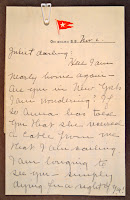 Juliet darling,
Here I am
Nearly home again –
Are you in New York
I am wondering? I
so
has told
you that she received
a cable from me
that I am sailing
I am longing to
see you – simply
dying for a sight of you